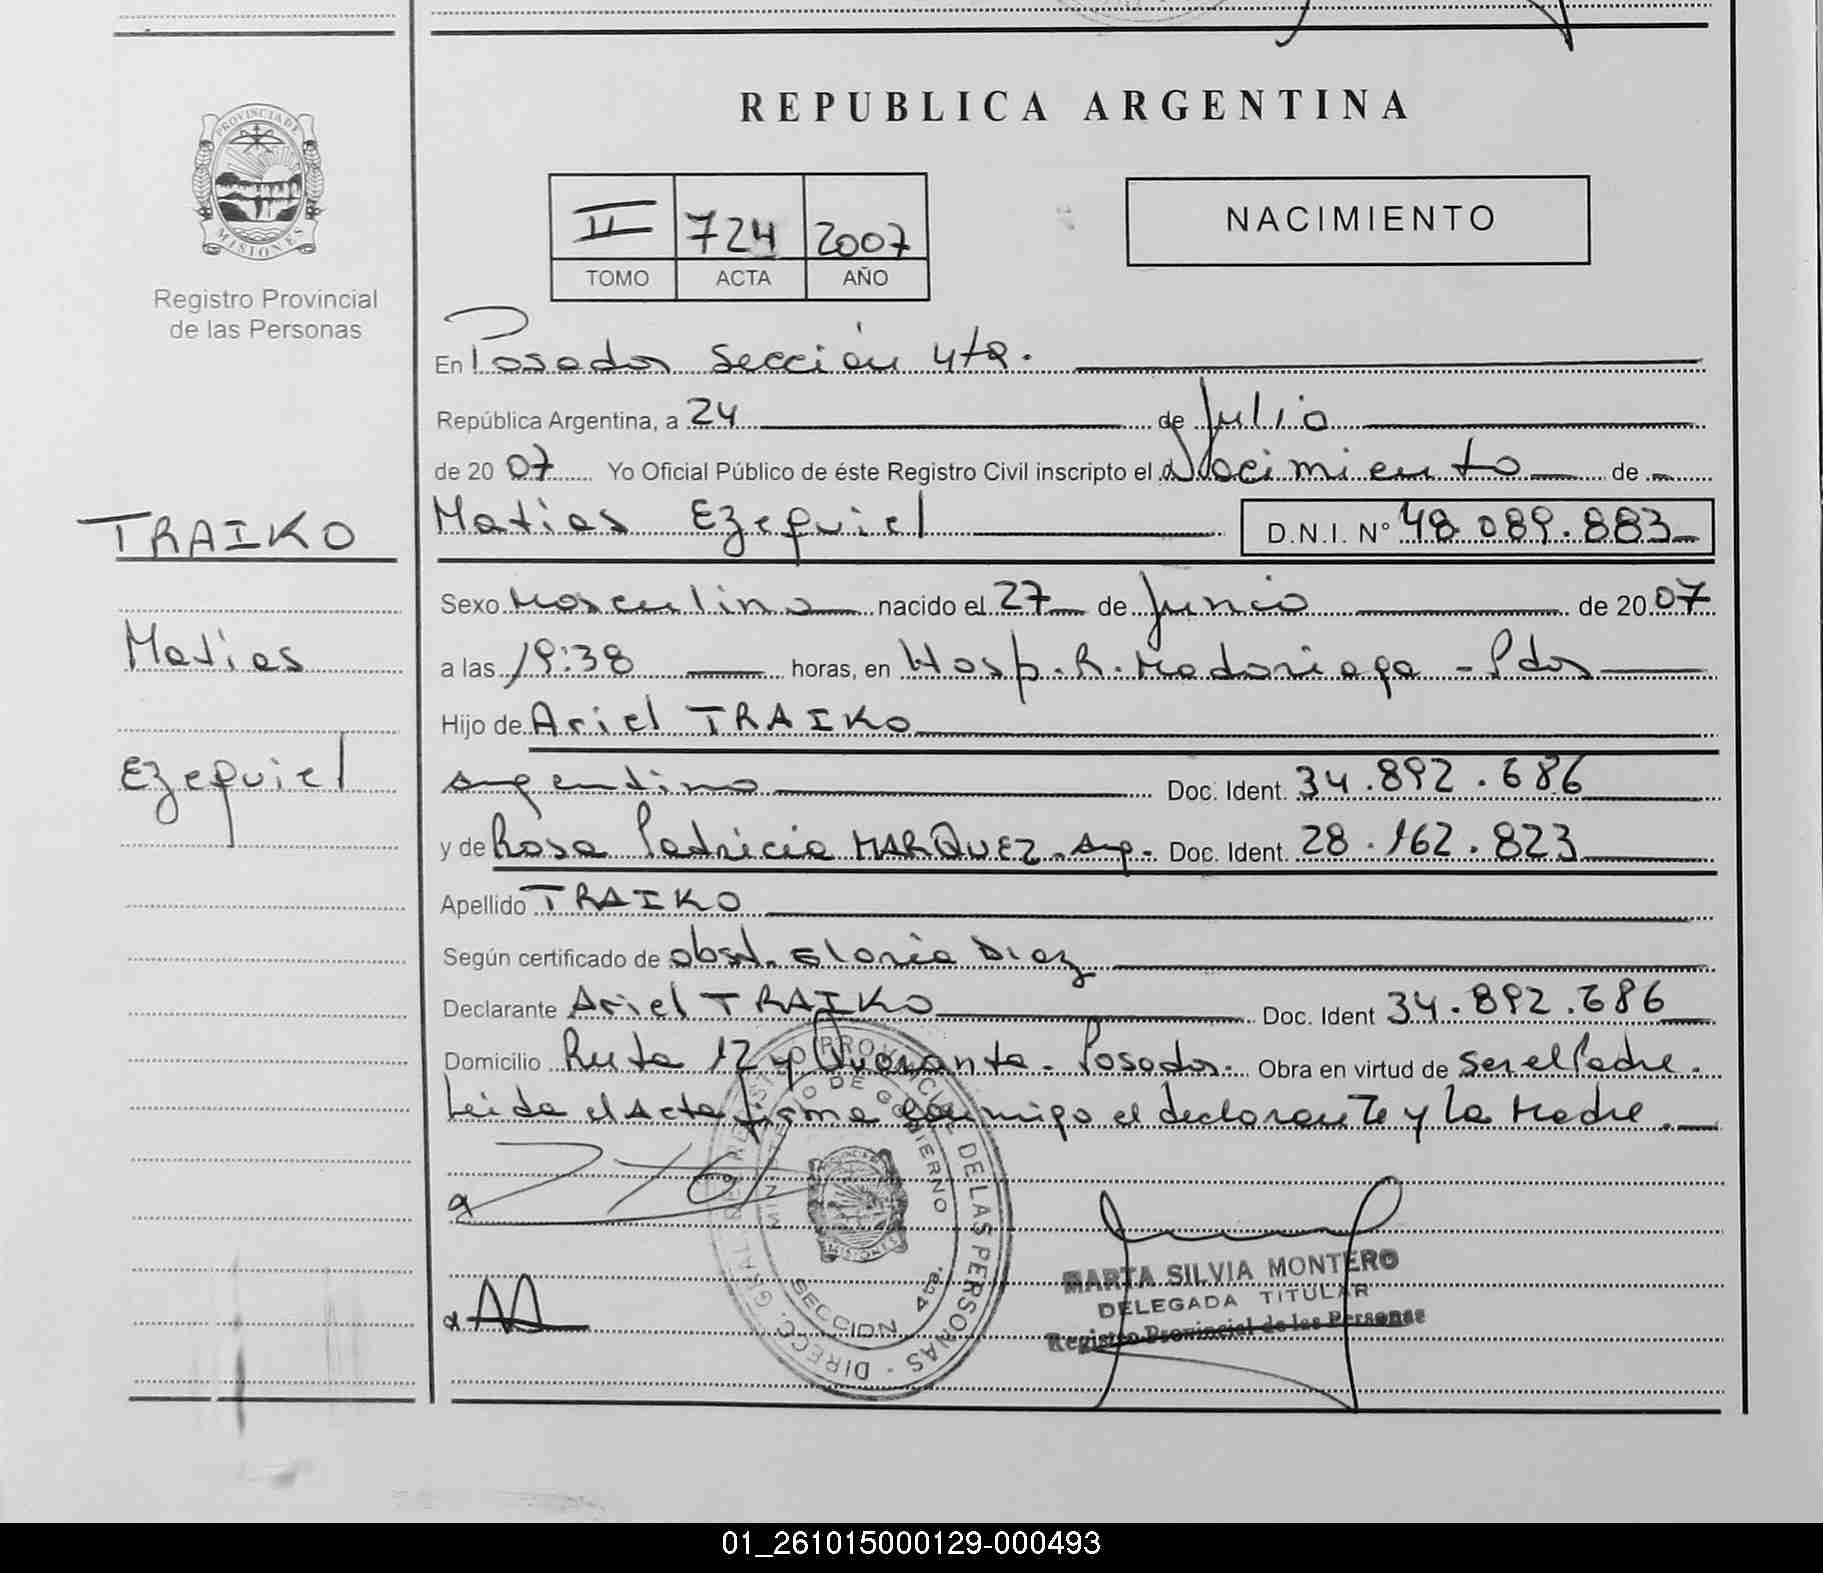 PROVINCIA DE
MISIONES
Registro Provincial
de las Personas
TRAIKO
Matias
Ezequiel
REPUBLICA ARGENTINA
II 724 2007
TOMO ACTA AÑO
NACIMIENTO
En Posadas Sección 4ta.
República Argentina, a 24 de Julio
de 20 07 Yo Oficial Público de éste Registro Civil inscripto el Nacimiento de
Matias Ezequiel D.N.I. N° 48.089.883
Sexo Masculino nacido el 27 de Junio de 20 07
a las 19:38 horas, en Hosp. R. Madariaga - Pdas
Hijo de Ariel TRAIKO
argentino Doc. Ident. 34.892.686
y de Rosa Patricia MARQUEZ - Arg. Doc. Ident. 28.162.823
Apellido TRAIKO
Según certificado de obst. Gloria Diaz
Declarante Ariel TRAIKO Doc. Ident 34.892.686
Domicilio Ruta 12 y Quaranta - Posadas. Obra en virtud de ser el Padre.
Leida el Acta firma conmigo el declarante y la Madre.
DIRECC. GRAL. DEL REGISTRO PROVINCIAL DE LAS PERSONAS
MINISTERIO DE GOBIERNO
PROVINCIA DE
MISIONES
SECCION 4ta.
MARTA SILVIA MONTERO
DELEGADA TITULAR
Registro Provincial de las Personas
01_261015000129-000493